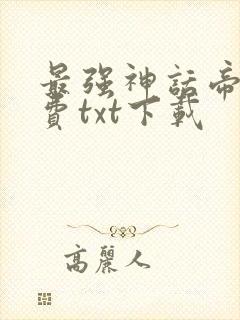 最强神話帝
費txt下載
高麗人